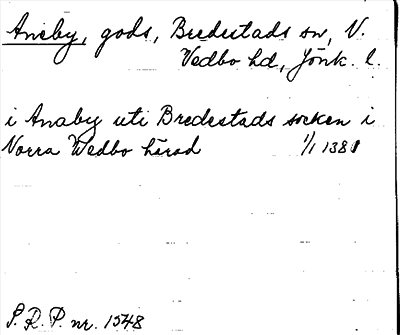 Aneby, gods, Bredestads sn, V.
Vedbo hd, Jönk. l.
i Anaby uti Bredestads socken i
Norra Wedbo härad 1/1 1381
S. R. P. nr. 1548